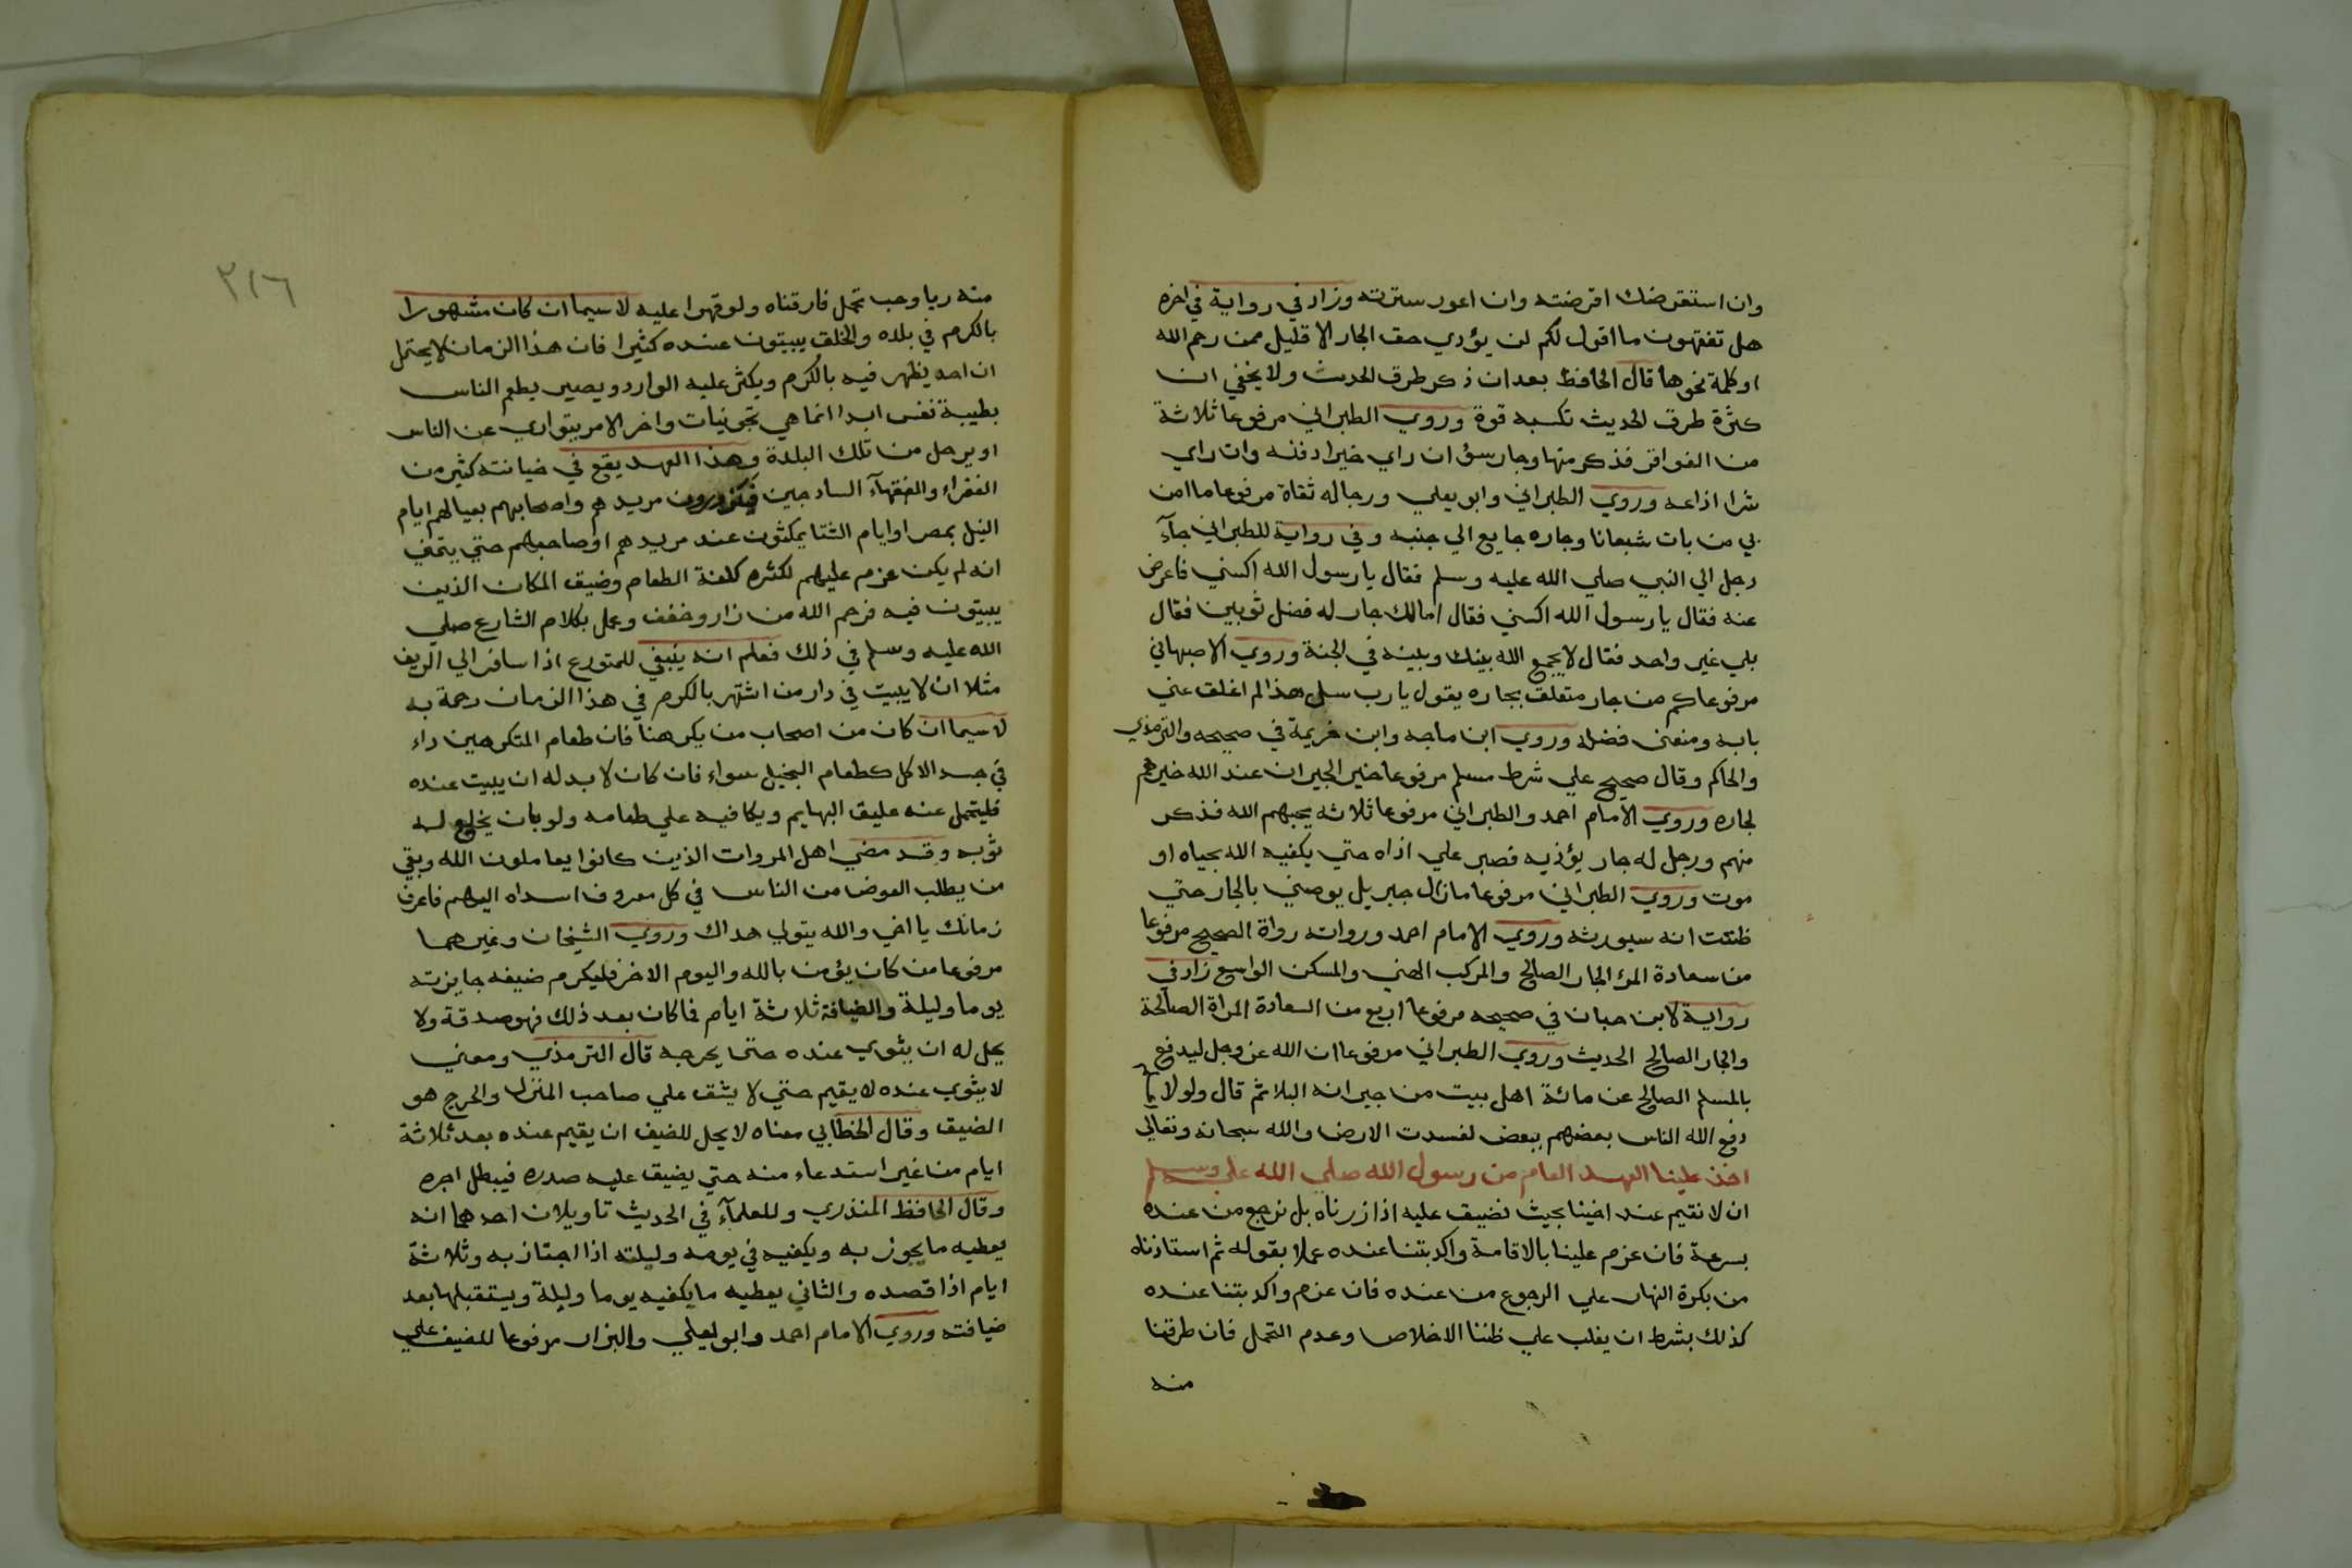 وان استقرضك اقرضته وان اعور سترته وزاد في رواية في اخره
هل تفقهون ما اقول لكم لن يؤدي حق الجار الا قليل ممن رحم الله
او كلمة نحوها قال الحافظ بعد ان ذكر طرق الحديث ولا يخفي ان
كثرة طرق الحديث تكسبه قوة وروي الطبراني مرفوعا ثلاثة
من الفواقر فذكر منها وجار سؤ ان راي خيرا دفنه وان راي
شرا اذاعه وروي الطبراني وابو يعلي ورجاله ثقاة مرفوعا ما امن
بي من بات شبعانا وجاره جايع الي جنبه وفي رواية للطبراني جآء
رجل الي النبي صلي الله عليه وسلم فقال يا رسول الله اكسني فاعرض
عنه فقال يا رسول الله اكسني فقال امالك جار له فضل ثوبين فقال
بلي غير واحد فقال لا يجمع الله بينك وبينه في الجنة وروي الاصبهاني
مرفوعا كم من جار متعلق بجاره يقول يا رب سل هذا لم اغلق عني
بابه ومنعني فضله وروي ابن ماجه وابن خزيمة في صحيحه والترمذي
والحاكم وقال صحيح علي شرط مسلم مرفوعا خير الجيران عند الله خيرهم
لجاره وروي الامام احمد والطبراني مرفوعا ثلاثه يحبهم الله فذكر
منهم ورجل له جار يؤذيه فصبر علي اذاه حتي يكفيه الله بحياه او
موت وروي الطبراني مرفوعا مازال جبريل يوصني بالجار حتي
ظننت انه سيورثه وروي الامام احمد ورواته رواة الصحيح مرفوعا
من سعادة المرء الجار الصالح والمركب الهني والمسكن الواسع زاد في
رواية لابن حبان في صحيحه مرفوعا اربع من السعادة المراة الصالحة
والجار الصالح الحديث وروي الطبراني مرفوعا ان الله عز وجل ليدفع
بالمسلم الصالح عن مائة اهل بيت من جيرانه البلا ثم قال ولولا
دفع الله الناس بعضهم ببعض لفسدت الارض والله سبحانه وتعالي
اخذ علينا العهد العام من رسول الله صلي الله عليه وسلم
ان لا نقيم عند اخينا بحيث نضيق عليه اذا زرناه بل نرجع من عنده
بسرعة فان عزم علينا بالاقامة واكد بتنا عنده عملا بقوله ثم استاذناه
من بكرة النهار علي الرجوع من عنده فان عزم واكد بتنا عنده
كذلك بشرط ان يغلب علي ظننا الاخلاص وعدم التجمل فان طرقنا
منه
٢١٦
منه ريا وحب تجمل فارقناه ولو قهرا عليه لا سيما ان كان مشهورا
بالكرم في بلاده والخلق يبيتون عنده كثيرا فان هذا الزمان لا يحتمل
ان احد يظهر فيه بالكرم ويكثر عليه الوارد ويصير يطعم الناس
بطيبة نفس ابدا انما هي تجونيات واخر الامر يتواري عن الناس
او يرحل من تلك البلدة وهذا العهد يقع في خيانته كثير من
الفقراء والفقهآء الساذجين فيزورون مريدهم واصحابهم بعيالهم ايام
النيل بمصر او ايام الشتا يمكثون عند مريدهم او صاحبهم حتي يتمني
انه لم يكن عزم عليهم لكثره كلفة الطعام وضيق المكان الذين
يبيتون فيه فرحم الله من زار وخفف وعمل بكلام الشارع صلي
الله عليه وسلم في ذلك فعلم انه ينبغي للمتورع اذا سافر الي الريف
مثلا ان لا يبيت في دار من اشتهر بالكرم في هذا الزمان رحمة به
لا سيما ان كان من اصحاب من يكرهنا فان طعام المتكرهين داء
في جسد الاكل كطعام البخيل سواء فان كان لا بد له ان يبيت عنده
فليتحمل عنه عليق البهايم ويكافيه علي طعامه ولو بان يخلع له
ثوبه وقد مضي اهل المروات الذين كانوا يعاملون الله وبقي
من يطلب العوض من الناس في كل معروف اسداه اليهم فاعرف
زمانك يا اخي والله يتولي هداك وروي الشيخان وغيرهما
مرفوعا من كان يؤمن بالله واليوم الاخر فليكرم ضيفه جايزته
يوما وليلة والضيافة ثلاثة ايام فما كان بعد ذلك فهو صدقة ولا
يحل له ان يثوي عنده حتي يحرجه قال الترمذي ومعني
لا يثوي عنده لا يقيم حتي لا يشق علي صاحب المنزل والحرج هو
الضيق وقال الخطابي معناه لا يحل للضيف ان يقيم عنده بعد ثلاثة
ايام من غير استدعاء منه حتي يضيق عليه صدره فيبطل اجره
وقال الحافظ المنذري وللعلمآء في الحديث تاويلان احدهما انه
يعطيه ما يجوز به ويكفيه في يومه وليلته اذا اجتاز به وثلاثة
ايام اذا قصده والثاني يعطيه ما يكفيه يوما وليلة ويستقبلها بعد
ضيافته وروي الامام احمد وابو يعلي والبزار مرفوعا للضيف علي